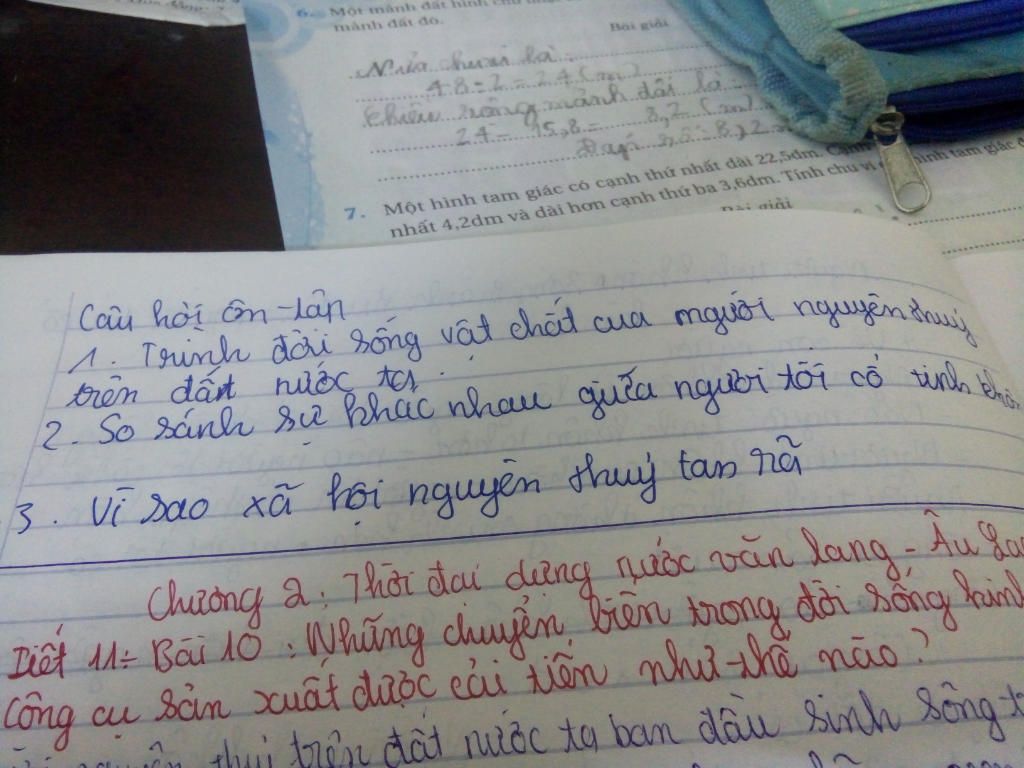 6. Một mảnh đất hình chữ nhật
mảnh đất đó.
Bài giải
Nửa chu vi là:
48 : 2 = 24 (m)
Chiều rộng mảnh đất là
24 - 15,8 = 8,2 (m)
7. Một hình tam giác có cạnh thứ nhất dài 22,5dm. Cạnh
nhất 4,2dm và dài hơn cạnh thứ ba 3,6dm. Tính chu vi hình tam giác
Bài giải
Câu hỏi ôn tận
1. Trình đời sống vật chất cua người nguyên thuỷ
trên đất nước ta.
2. So sánh sự khác nhau giữa người tối cổ tinh khôn
3. Vì sao xã hội nguyên thuỷ tan rã
Chương 2: Thời đai dựng nước văn lang - Âu Lạc
Tiết 11: Bài 10: Những chuyển biến trong đời sống kinh
Công cụ sản xuất được cải tiến như thế nào?
nguyên thuỷ trên đất nước ta ban đầu sinh sống